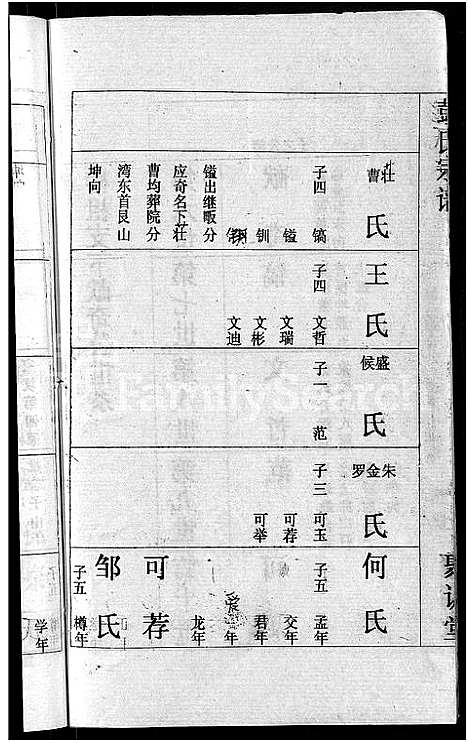 彭氏宗谱
聚讲堂
壮曹氏
子四 镐
镒
钊
镒出继暇分
应奇名下壮
曹均葬院分
湾东首艮山
坤向
王氏
子四 文哲
文瑞
文彬
文迪
盛候氏
子一 范
朱金罗氏
子三 可玉
可荐
可举
何氏
子五 孟年
交年
君年
年
龙年
可荐
邹氏
子五 樽年
学年
FamilySearch